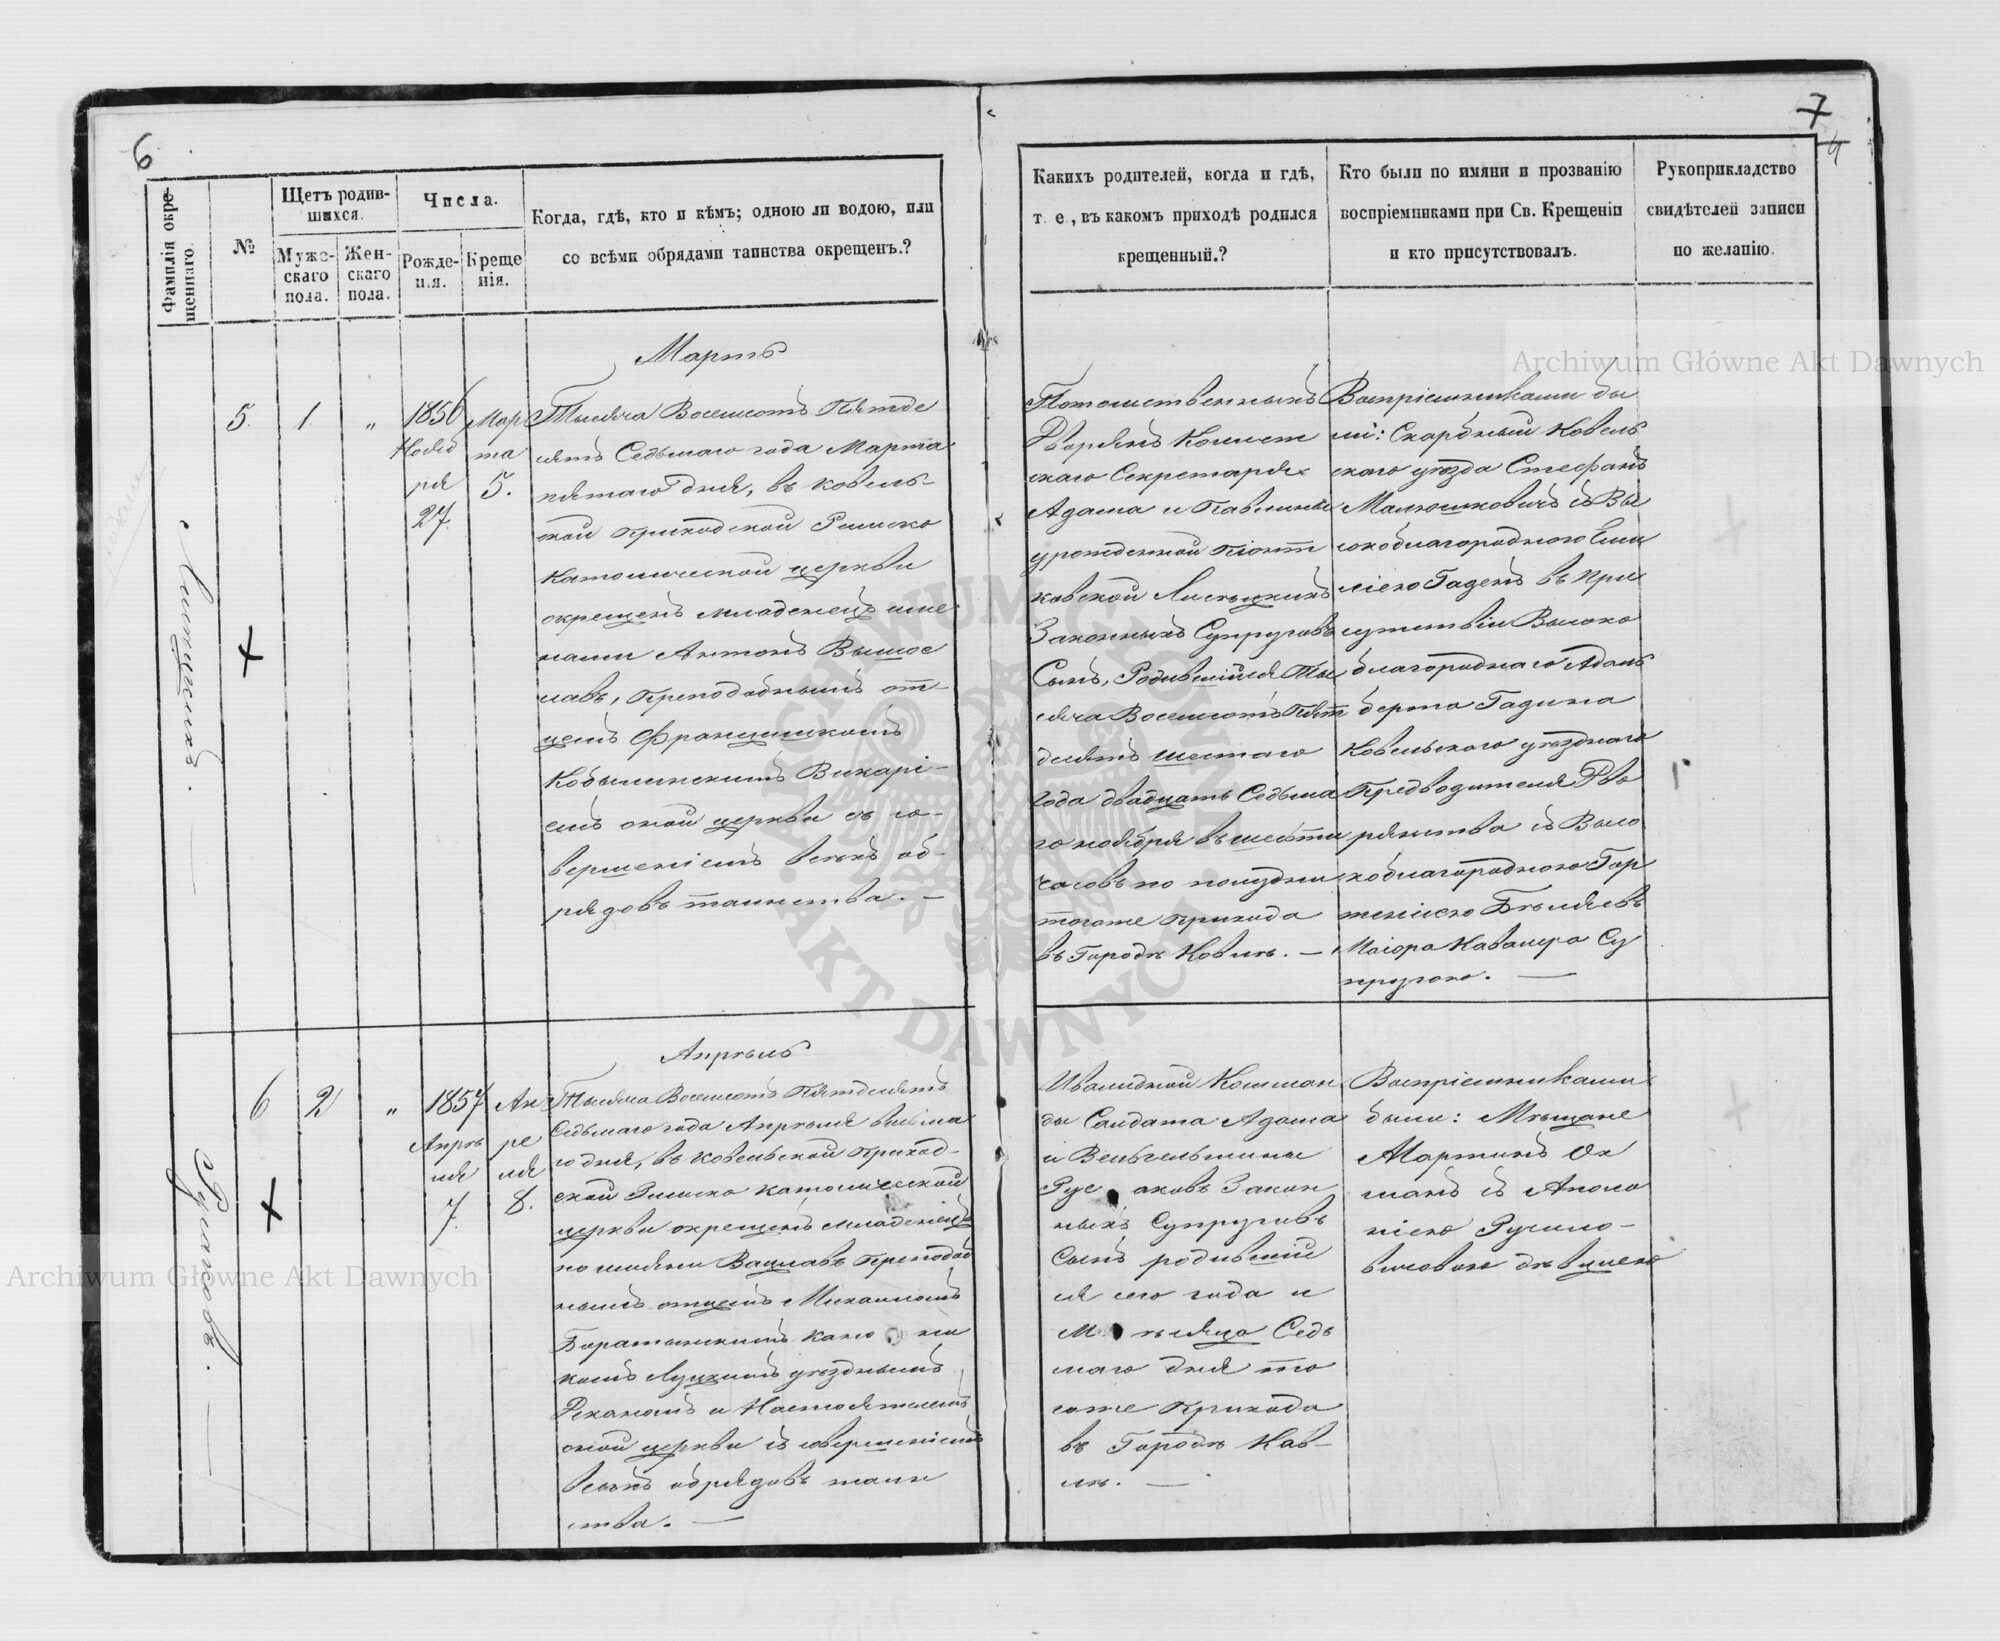 6
Фамилія окре-
щеннаго.
№
Щетъ родив-
шихся.
Муже-
скаго
пола.
Жен-
скаго
пола.
Числа.
Рожде-
нія.
Креще
нія.
Когда, гдѣ, кто и кѣмъ; одною ли водою, или
со всѣми обрядами таинства окрещенъ.?
Мартъ
5.
1.
"
1856
Нояб
ря
27.
Мар
та
5.
Тысяча Восемсотъ Пятьде
сятъ Седьмаго года Марта
пятаго дня, въ Ковель-
ской приходской Римско
Католической церкви
окрещенъ младенецъ име
нами Антонъ Вышос
лавъ, Преподобнымъ от-
цемъ Францишкомъ
Кобылинскимъ Викарі-
емъ оной церкви съ со-
вершеніемъ всѣхъ об-
рядовъ таинства. —
Апрѣль
6
2
"
1857
Апрѣ
ля
7.
Ап
ре
ля
8.
Тысяча Восемсотъ Пятдесятъ
Седьмаго года Апрѣля восьма
го дня, въ Ковельской приход-
ской Римско Католической
церкви окрещенъ младенецъ
по имяни Вацлавъ Преподоб
нымъ отцемъ Михаиломъ
Баратынскимъ Кано ни
комъ Луцкимъ уѣзднымъ
Деканомъ и Настоятелемъ
оной церкви съ совершеніемъ
всѣхъ обрядовъ таин
ства. —
7
4
Какихъ родителей, когда и гдѣ,
т. е., въ какомъ приходѣ родился
крещенный.?
Кто были по имяни и прозванію
воспріемниками при Св. Крещеніи
и кто присутствовалъ.
Рукоприкладство
свидѣтелей записи
по желанію.
Потомственныхъ
Дворянъ Колеж
скаго Секретаря
Адама и Павлины
урожденной Піонт
ковской
Законныхъ Супруговъ
Сынъ, Родившійся Ты
сяча Восемсотъ Пят
десятъ шестаго
года двадцать Седьма
го ноября въ шесть
часовъ по полудни
тогоже прихода
въ Городѣ Ковлѣ. —
Воспріемниками бы
ли: Скарбный Ковель
скаго уѣзда Стефанъ
Малюшковичъ съ Вы
сокоблагородною Еми
ліею Гаденъ въ при
сутствіи Высоко
благороднаго Адаль
берта Гадина
Ковельского уѣзднаго
Предводителя Дво
рянства съ Высо
коблагородною Гор
тензіею Бѣляевъ
Маіора Кавалера Су
пругою. —
Ивалидной Комман
ды Салдата Адама
и Вельгельмины
Рус аковъ Закон
ныхъ Супруговъ
Сынъ родившій
ся сего года и
М ѣсяца Седь
маго дня то
гоже Прихода
въ Городѣ Ков-
лѣ. —
Воспріемниками
были: Мѣщане
Мартинъ Ох
манъ съ Аполо
ніею
дѣвицею
Archiwum Główne Akt Dawnych
Archiwum Główne Akt Dawnych
ARCHIWUM GŁÓWNE AKT DAWNYCH